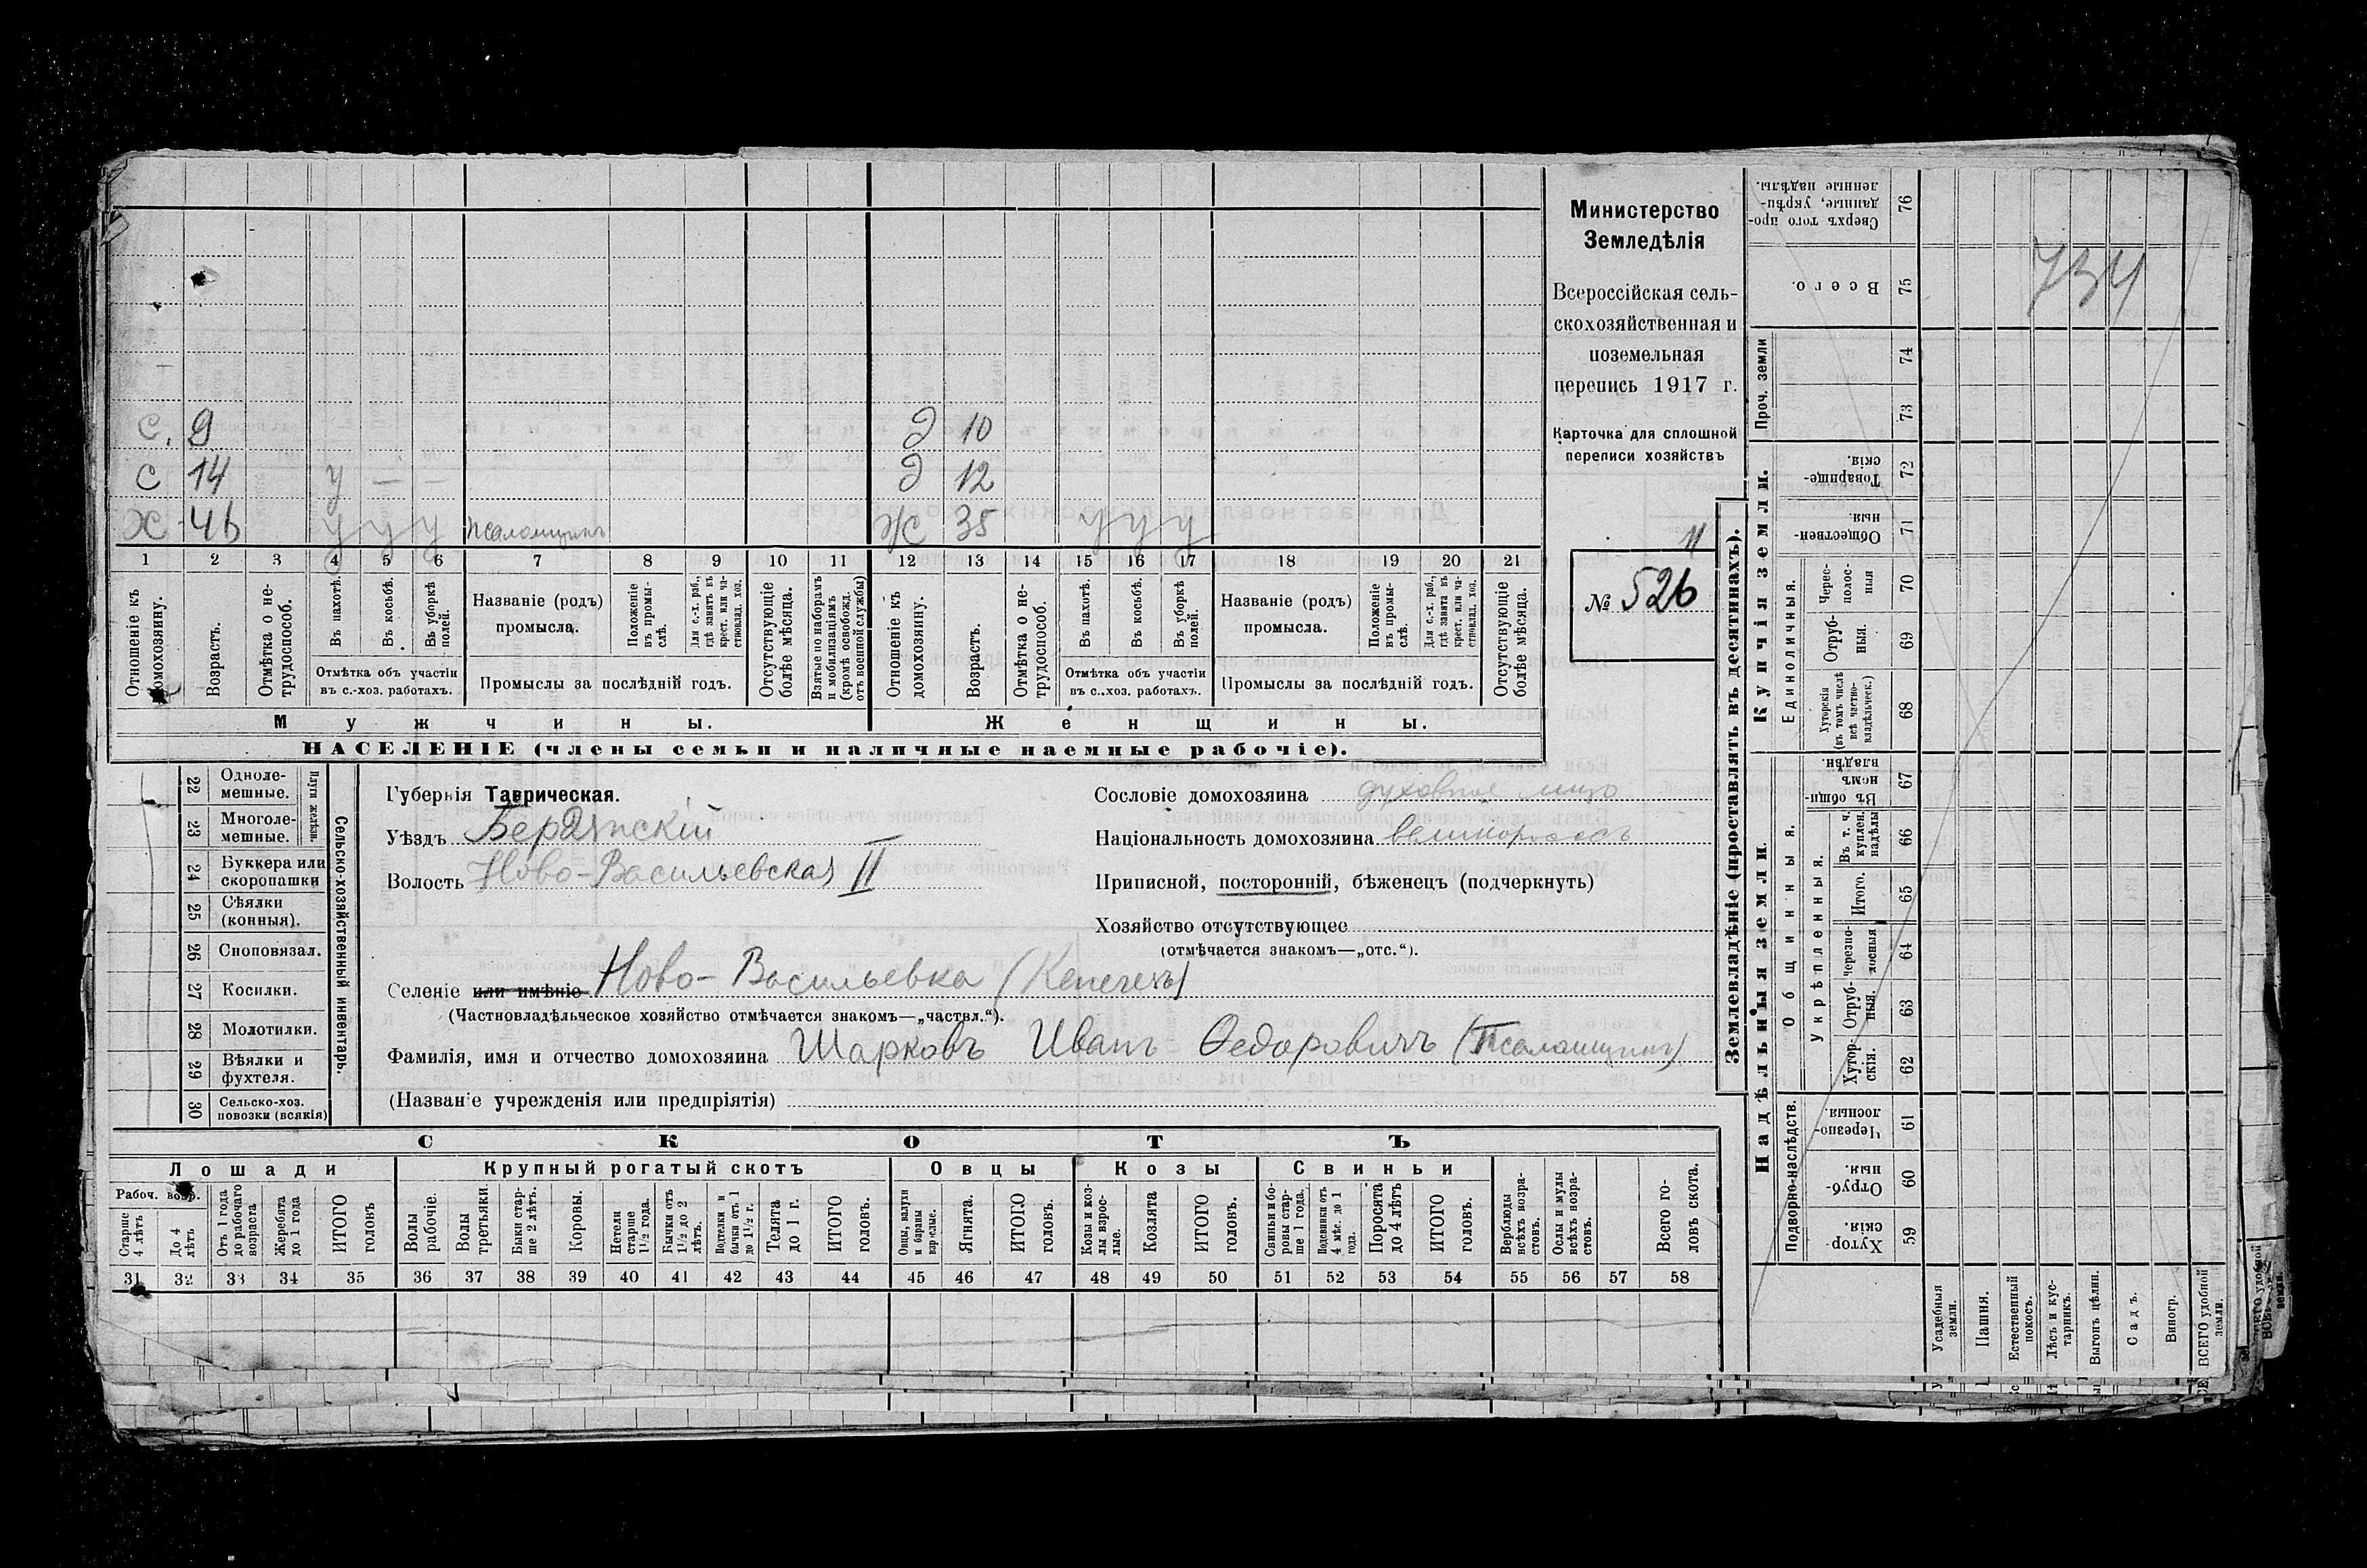 С. 9 Д 10
С 14 у — — Д 12
Х 46 у у у Псаломщикъ Ж 35 у у у
1 2 3 4 5 6 7 8 9 10 11 12 13 14 15 16 17 18 19 20 21
Отношеніе къ домохозяину.
Возрастъ.
Отмѣтка о не-
трудоспособ.
Въ пахотѣ.
Въ косьбѣ.
Въ уборкѣ
полей.
Отмѣтка объ участіи
въ с.-хоз. работахъ.
Названіе (родъ)
промысла.
Положеніе
въ промы-
слѣ.
Для с.-х. раб.,
гдѣ занятъ въ
крест. или ча-
стновлад. хоз.
Промыслы за послѣдній годъ.
Отсутствующіе
болѣе мѣсяца.
Взятые по наборамъ
и мобилизаціямъ
(кромѣ освобожд.
отъ военной службы)
Отношеніе къ
домохозяину.
Возрастъ.
Отмѣтка о не-
трудоспособ.
Въ пахотѣ.
Въ косьбѣ.
Въ уборкѣ
полей.
Отмѣтка объ участіи
въ с..хоз. работахъ.
Названіе (родъ)
промысла.
Положеніе
въ промы-
слѣ.
Для с.-х. раб.,
гдѣ занята въ
крест. или ча-
стновлад. хоз.
Промыслы за послѣдній годъ.
Отсутствующіе
болѣе мѣсяца.
Мужчины. Женщины.
НАСЕЛЕНІЕ (члены семьи и наличные наемные рабочіе).
Министерство
Земледѣлія
Всероссійская сель-
скохозяйственная и
поземельная
перепись 1917 г.
Карточка для сплошной
переписи хозяйствъ
11
№ 526
22 Одноле-
мешные.
23 Многоле-
мешные.
Плуги желѣзн.
24 Буккера или
скоропашки
25 Сѣялки
(конныя).
26 Сноповязал.
27 Косилки.
28 Молотилки.
29 Вѣялки и
фухтеля.
30 Сельско-хоз.
повозки (всякія)
Сельско-хозяйственный инвентарь.
Губернія Таврическая.
Уѣздъ Бердянскій
Волость Ново-Васильевская II
Сословіе домохозяина духовное лицо
Національность домохозяина великороссъ
Приписной, посторонній, бѣженецъ (подчеркнуть)
Хозяйство отсутствующее
(отмѣчается знакомъ—„отс.“).
Селеніе или имѣніе Ново-Васильевка (Кенегезъ)
(Частновладѣльческое хозяйство отмѣчается знакомъ—„частвл.“).
Фамилія, имя и отчество домохозяина Шарковъ Иванъ Ѳедоровичъ (Псаломщикъ)
(Названіе учрежденія или предпріятія)
СКОТЪ
Лошади Крупный рогатый скотъ Овцы Козы Свиньи
Рабоч. возр.
Старше
4 лѣтъ
До 4
лѣтъ
Отъ 1 года
до рабочаго
возраста
Жеребята
до 1 года
ИТОГО
головъ
Волы
рабочіе.
Волы
третьяки.
Быки стар-
ше 2 лѣтъ.
Коровы.
Нетели
старше
1½ года.
Бычки отъ
1½ до 2
лѣтъ.
Подтелки и
бычки отъ 1
до 1½ г.
Телята
до 1 г.
ИТОГО
головъ.
Овцы, валухи
и бараны
взрослые.
Ягнята.
ИТОГО
головъ.
Козы и коз-
лы взрос-
лые.
Козлята
ИТОГО
головъ.
Свиньи и бо-
ровы стар-
ше 1 года.
Подсвинки отъ
4 мѣс. до 1
года.
Поросята
до 4 лѣтъ
ИТОГО
головъ.
Верблюды
всѣхъ возра-
стовъ.
Ослы и мулы
всѣхъ возра-
стовъ.
Всего го-
ловъ скота.
31 32 33 34 35 36 37 38 39 40 41 42 43 44 45 46 47 48 49 50 51 52 53 54 55 56 57 58
Землевладѣніе (проставлять въ десятинахъ).
Купчія земли.
Надѣльныя земли.
76 Сверхъ того про-
данные, укрѣп-
ленные надѣлы.
734
75 Всего.
Проч. земли
74
73
72 Товарище-
скія.
71 Обществен-
ныя.
Единоличныя.
70 Черес-
полос-
ныя
69 Отруб-
ныя.
68 Хуторскія
(въ томъ числѣ
всѣ частно-
владѣльческ.)
Общинныя.
67 Въ общи-
номъ
владѣн.
Укрѣпленныя.
66 Въ т. ч.
куплен.
надѣлы
65 Итого.
64 Черезпо-
лосныя
63 Отруб-
ныя.
62 Хутор-
скія.
Подворно-наслѣдств.
61 Черезпо-
лосныя.
60 Отруб-
ныя.
59 Хутор-
скія.
Усадебныя
земли.
Пашня.
Естественный
покосъ.
Лѣсъ и кус-
тарникъ.
Выгонъ цѣлин.
Садъ.
Виногр.
ВСЕГО удобной
земли.